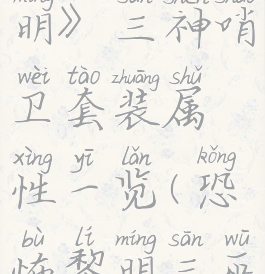 明》三神哨
wèi tào zhuāng shǔ
卫套装属
xìng yī lǎn kǒng
性一览(恐
bù lí míng sān wū
怖黎明三巫